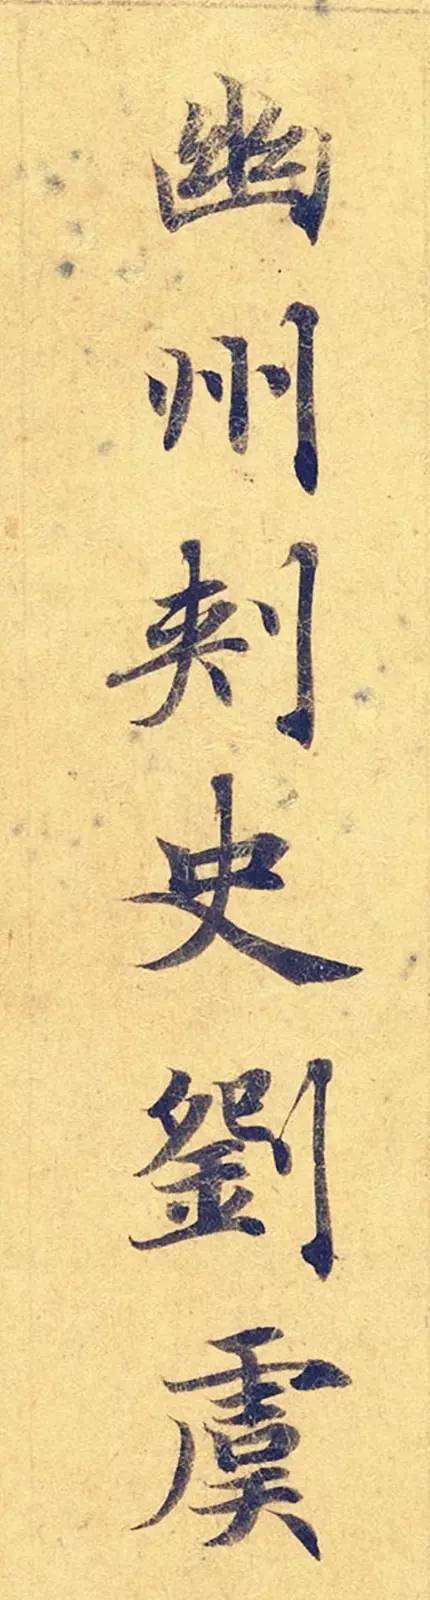 幽州刺史劉虞